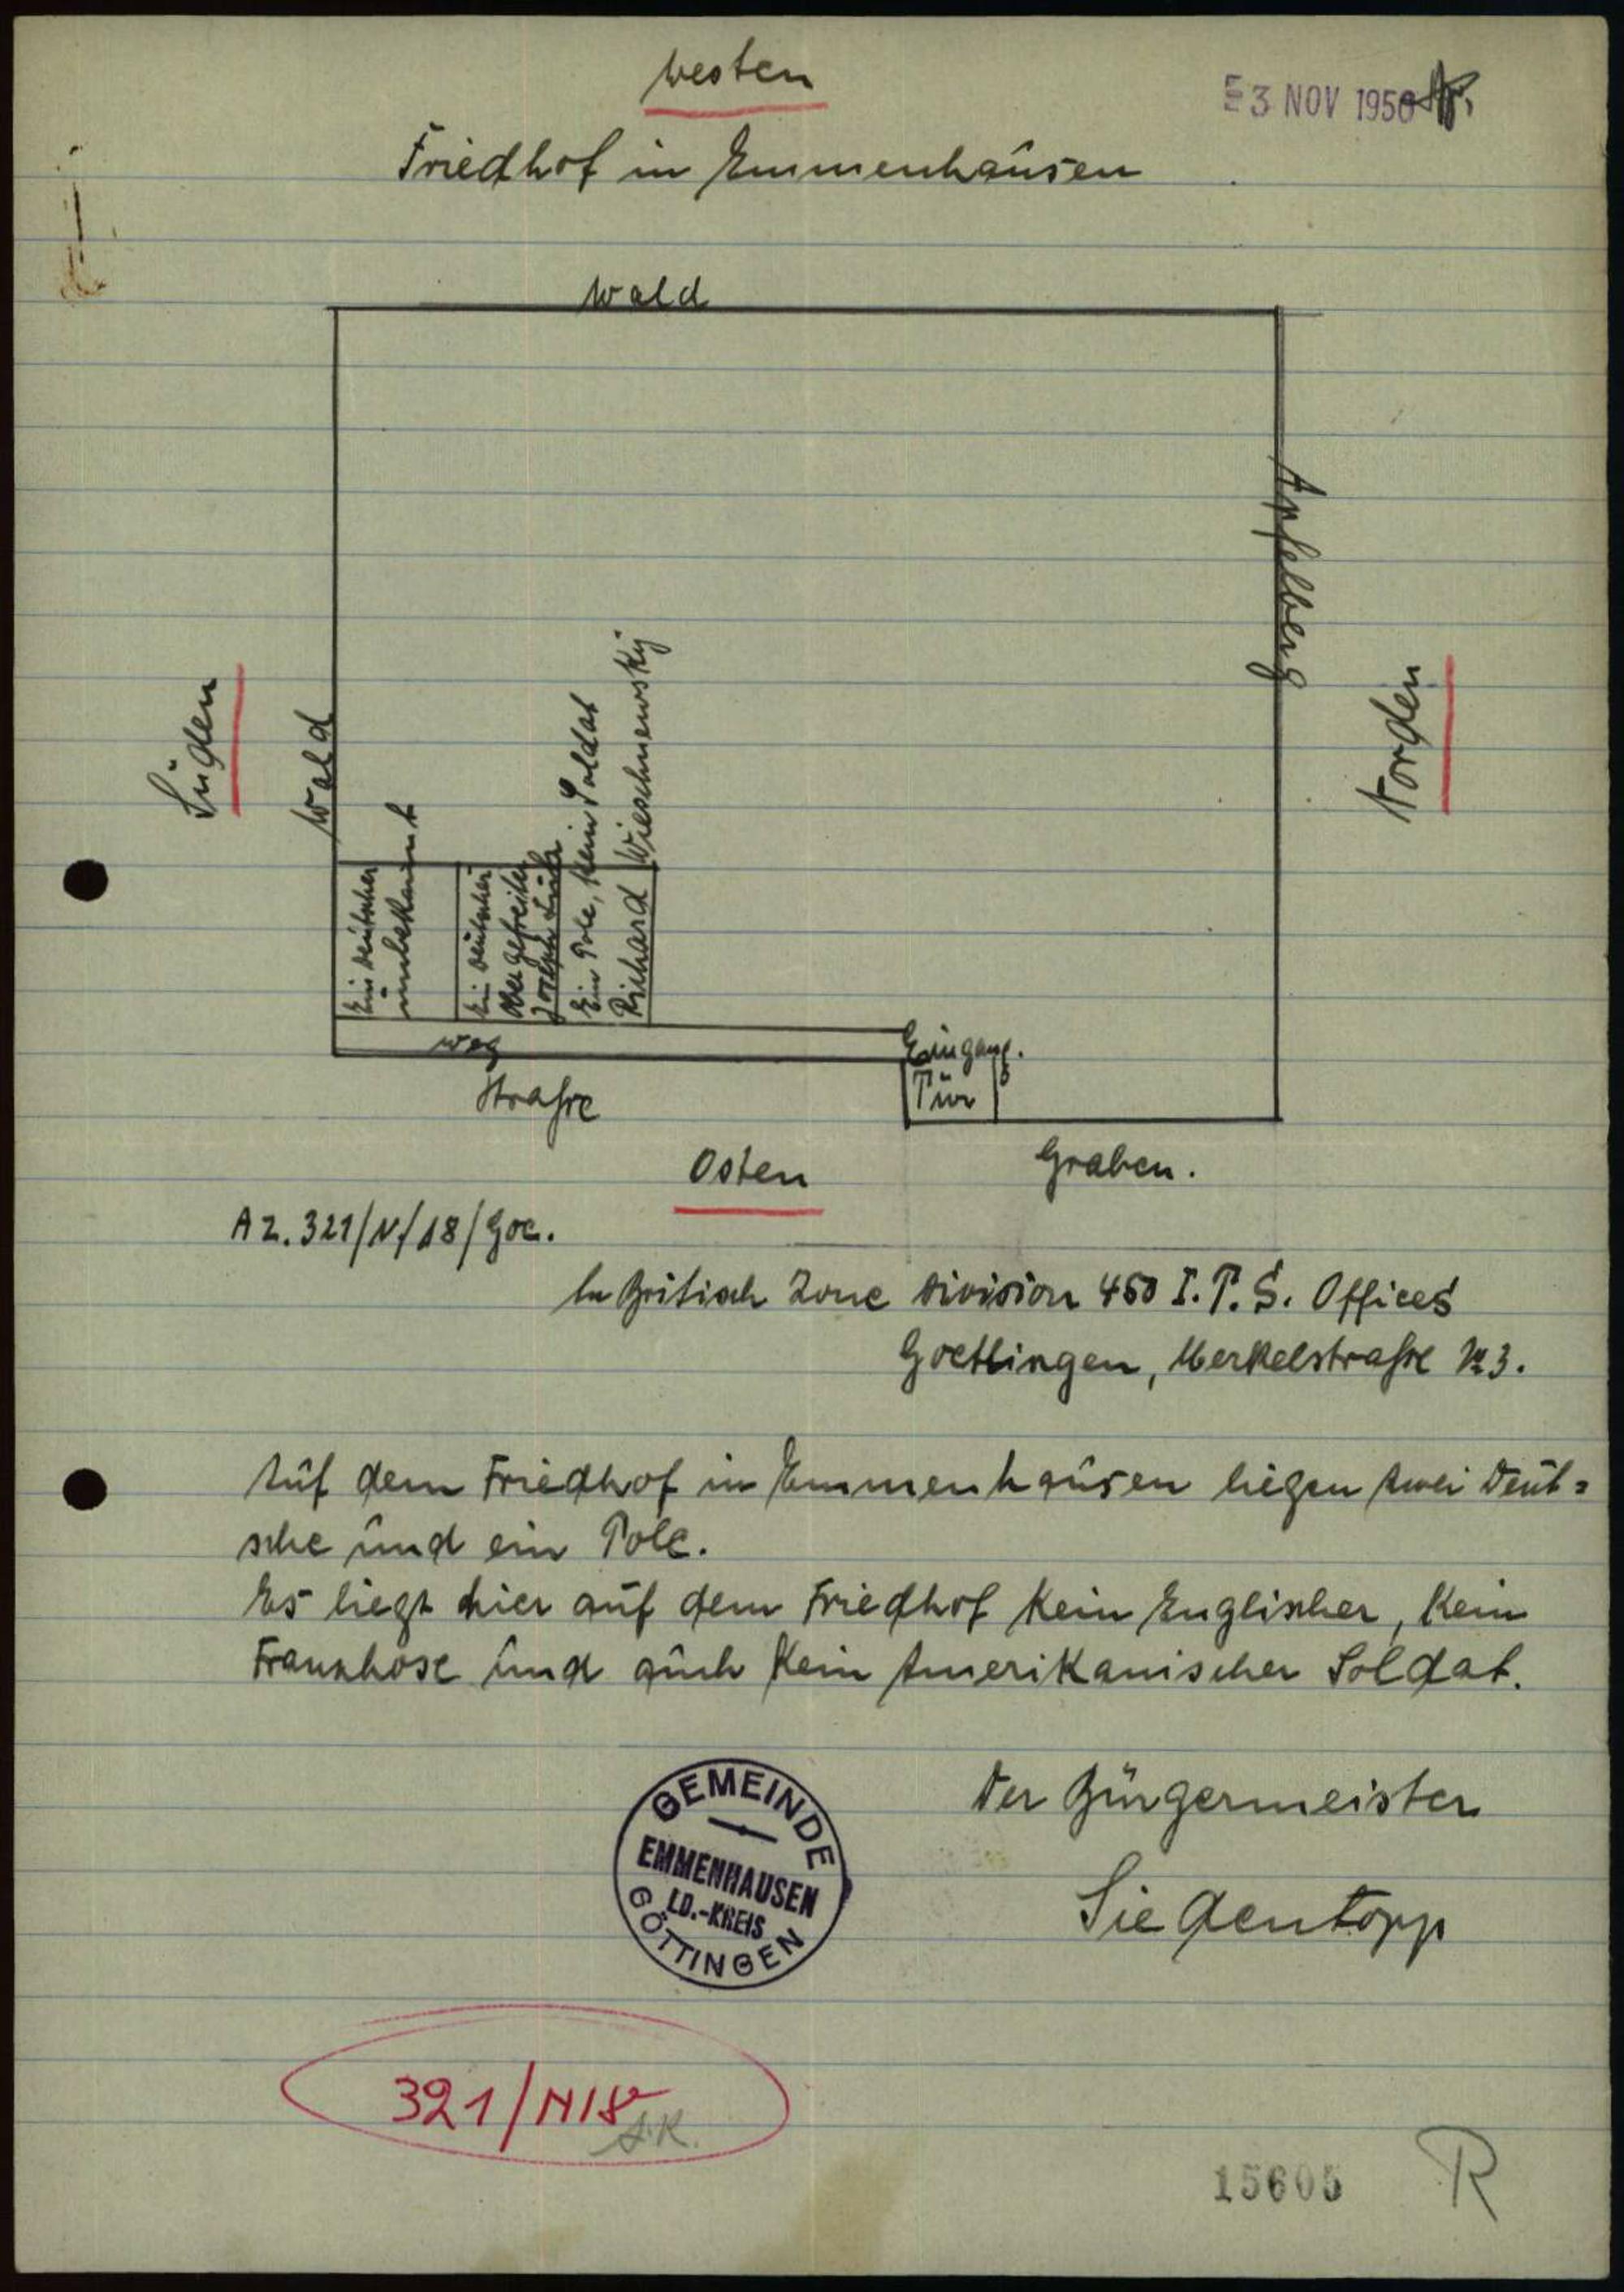 Westen
3 NOV 1950
Friedhof in Emmenhausen
Wald
Apfelberg
Norden
Süden
Wald
Ein deutscher
unbekannt
Ein deutscher
Obergefreiter
Joseph
Ein Pole, kein Soldat
Richard Wieschnewskij
Weg
Eingang.
Tür
Strasse
Osten
Graben.
Az. 321/N/18/Goe.
Britisch Zone Division 450 I.T.S. Offices
Goettingen, Merkelstrasse № 3.
Auf dem Friedhof in Emmenhausen liegen zwei Deut=
sche und ein Pole.
Es liegt hier auf dem Friedhof kein Englischer, kein
Franzhose und auch kein Amerikanischer Soldat.
GEMEINDE
EMMENHAUSEN
LD.-KREIS
GÖTTINGEN
Der Bürgermeister
Siedentopp
321/N18
A.K.
15605
R